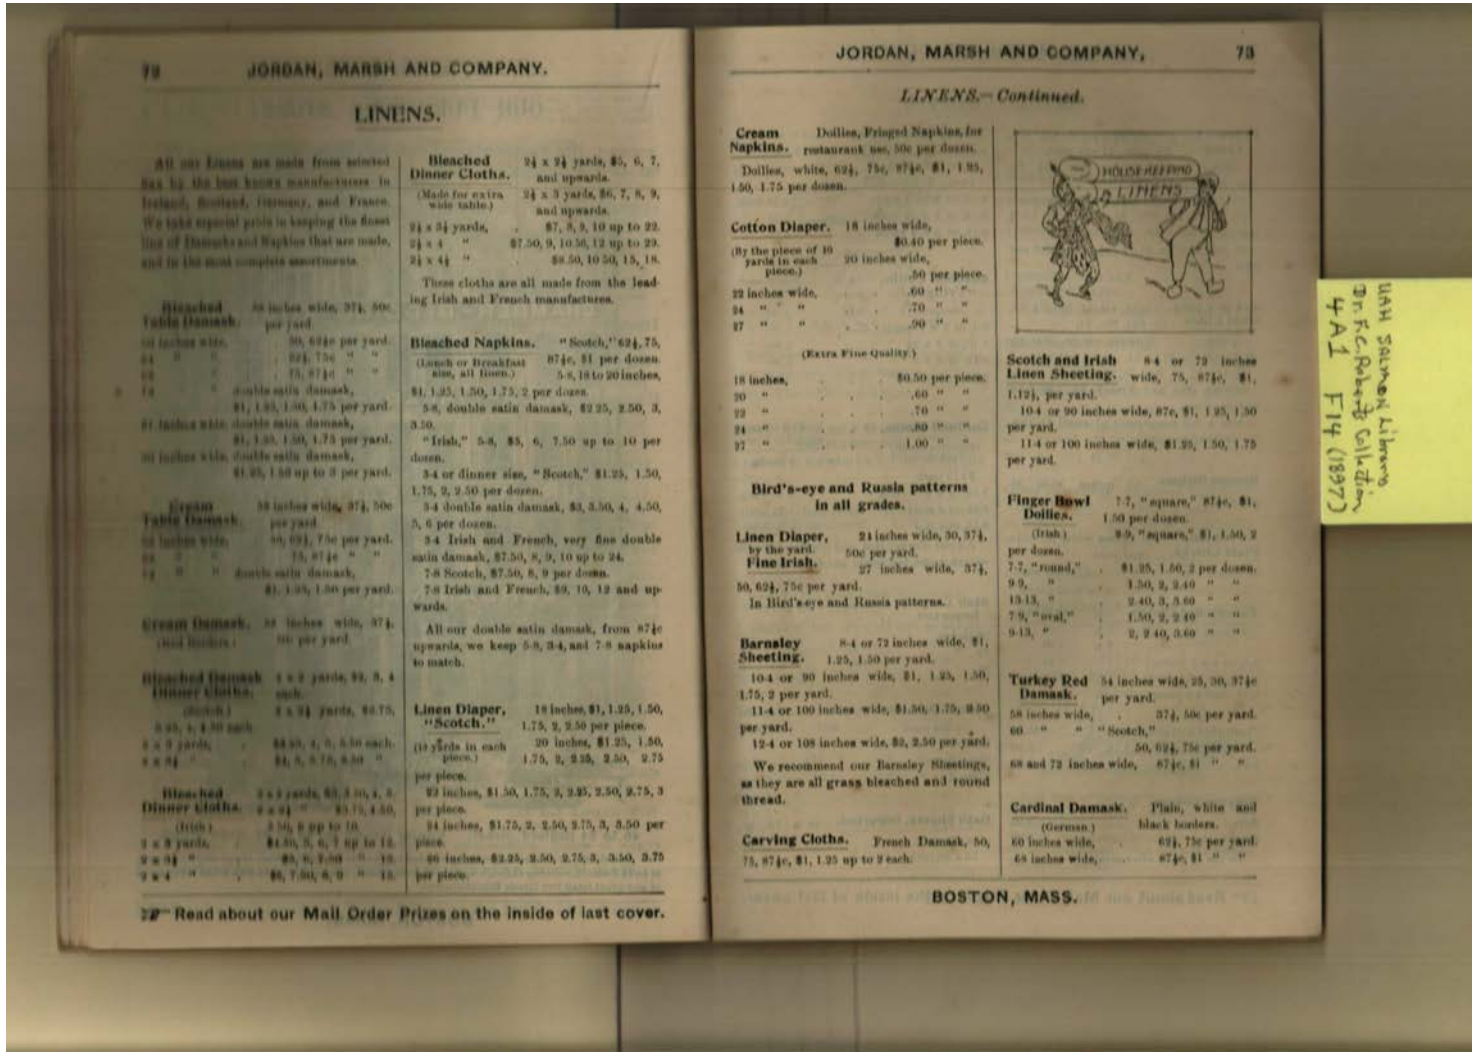 72 JORDAN, MARSH AND COMPANY.
LINENS.
All our Linens are made from selected
flax by the best known manufacturers in
Ireland, Scotland, Germany, and France.
We take especial pride in keeping the finest
line of Damasks and Napkins that are made,
and in the most complete assortments.
Bleached 58 inches wide, 37½, 50c
Table Damask. per yard.
inches wide, 50, 62½c per yard.
62½, 75c " "
75, 87½c " "
double satin damask,
$1, 1.25, 1.50, 1.75 per yard.
inches wide, double satin damask,
$1.25, 1.50, 1.75 per yard.
inches wide, double satin damask,
$1.25, 1.50 up to 3 per yard.
Cream 58 inches wide, 37½, 50c
Table Damask. per yard.
inches wide, 50, 62½, 75c per yard.
75, 87½c " "
double satin damask,
$1, 1.25, 1.50 per yard.
Cream Damask. 58 inches wide, 37½,
(Red Borders.) 50c per yard.
Bleached Damask 2 x 2 yards, $2, 3, 4
Dinner Cloths. each.
(Scotch.) 2 x 2½ yards, $2.75,
4, 4.50 each.
2 x 3 yards, each.
Bleached
Dinner Cloths.
(Irish.) up to 10.
2 x 3 yards, $4.50, 5, 6, 7 up to 12.
2 x 3½ " $5, 6, 7.50 " 15.
2 x 4 " $6, 7.50, 8, 9 " 15.
Bleached 2¼ x 2¼ yards, $5, 6, 7,
Dinner Cloths. and upwards.
(Made for extra 2½ x 3 yards, $6, 7, 8, 9,
wide table.) and upwards.
2½ x 3½ yards, . $7, 8, 9, 10 up to 22.
2½ x 4 " $7.50, 9, 10.50, 12 up to 29.
2½ x 4½ " . $8.50, 10 50, 15, 18.
These cloths are all made from the lead-
ing Irish and French manufactures.
Bleached Napkins. "Scotch," 62½, 75,
(Lunch or Breakfast 87½c, $1 per dozen.
size, all linen.) 5-8, 18 to 20 inches,
$1, 1.25, 1.50, 1.75, 2 per dozen.
5-8, double satin damask, $2.25, 2.50, 3,
3.50.
"Irish," 5-8, $5, 6, 7.50 up to 10 per
dozen.
3-4 or dinner size, "Scotch," $1.25, 1.50,
1.75, 2, 2.50 per dozen.
3-4 double satin damask, $3, 3.50, 4, 4.50,
5, 6 per dozen.
3-4 Irish and French, very fine double
satin damask, $7.50, 8, 9, 10 up to 24.
7-8 Scotch, $7.50, 8, 9 per dozen.
7-8 Irish and French, $9, 10, 12 and up-
wards.
All our double satin damask, from 87½c
upwards, we keep 5-8, 3-4, and 7-8 napkins
to match.
Linen Diaper, 18 inches, $1, 1.25, 1.50,
"Scotch." 1.75, 2, 2.50 per piece.
yards in each 20 inches, $1.25, 1.50,
piece.) 1.75, 2, 2.25, 2.50, 2.75
per piece.
22 inches, $1.50, 1.75, 2, 2.25, 2.50, 2.75, 3
per piece.
24 inches, $1.75, 2, 2.50, 2.75, 3, 3.50 per
piece.
26 inches, $2.25, 2.50, 2.75, 3, 3.50, 3.75
per piece.
Read about our Mail Order Prizes on the inside of last cover.
JORDAN, MARSH AND COMPANY, 73
LINENS.—Continued.
Cream Doilies, Fringed Napkins, for
Napkins. restaurant use, 50c per dozen.
Doilies, white, 62½, 75c, 87½c, $1, 1.25,
1.50, 1.75 per dozen.
Cotton Diaper. 18 inches wide,
$0.40 per piece.
(By the piece of 10 20 inches wide,
yards in each .50 per piece.
piece.)
22 inches wide, . . .60 " "
24 " " . . .70 " "
27 " " . . .90 " "
(Extra Fine Quality.)
18 inches, . . $0.50 per piece.
20 " . . .60 " "
22 " . . .70 " "
24 " . . .80 " "
27 " . . 1.00 " "
Bird's-eye and Russia patterns
in all grades.
Linen Diaper, 21 inches wide, 30, 37½,
by the yard. 50c per yard.
Fine Irish. 27 inches wide, 37½,
50, 62½, 75c per yard.
In Bird's-eye and Russia patterns.
Barnsley 8-4 or 72 inches wide, $1,
Sheeting. 1.25, 1.50 per yard.
10-4 or 90 inches wide, $1, 1.25, 1.50,
1.75, 2 per yard.
11-4 or 100 inches wide, $1.50, 1.75, 2.50
per yard.
12-4 or 108 inches wide, $2, 2.50 per yard.
We recommend our Barnsley Sheetings,
as they are all grass bleached and round
thread.
Carving Cloths. French Damask, 50,
75, 87½c, $1, 1.25 up to 2 each.
HOUSEKEEPING
LINENS
Scotch and Irish 8-4 or 72 inches
Linen Sheeting. wide, 75, 87½c, $1,
1.12½, per yard.
10-4 or 90 inches wide, 87c, $1, 1 25, 1.50
per yard.
11-4 or 100 inches wide, $1.25, 1.50, 1.75
per yard.
Finger Bowl 7-7, "square," 87½c, $1,
Doilies. 1.50 per dozen.
(Irish) 9-9, "square," $1, 1.50, 2
per dozen.
7-7, "round," . $1.25, 1.50, 2 per dozen.
9-9, " . 1.50, 2, 2.40 " "
13-13, " . 2.40, 3, 3.60 " "
7-9, "oval," . 1.50, 2, 2 40 " "
9-13, " . 2, 2 40, 3.60 " "
Turkey Red 54 inches wide, 25, 30, 37½c
Damask. per yard.
58 inches wide, . 37½, 50c per yard.
60 " " "Scotch,"
50, 62½, 75c per yard.
68 and 72 inches wide, 87½c, $1 " "
Cardinal Damask. Plain, white and
(German.) black borders.
60 inches wide, . 62½, 75c per yard.
68 inches wide, . 87½c, $1 " "
BOSTON, MASS.
UAH SALMON Library
Dr. F.C. Roberts Collection
4A1 F14 (1897)